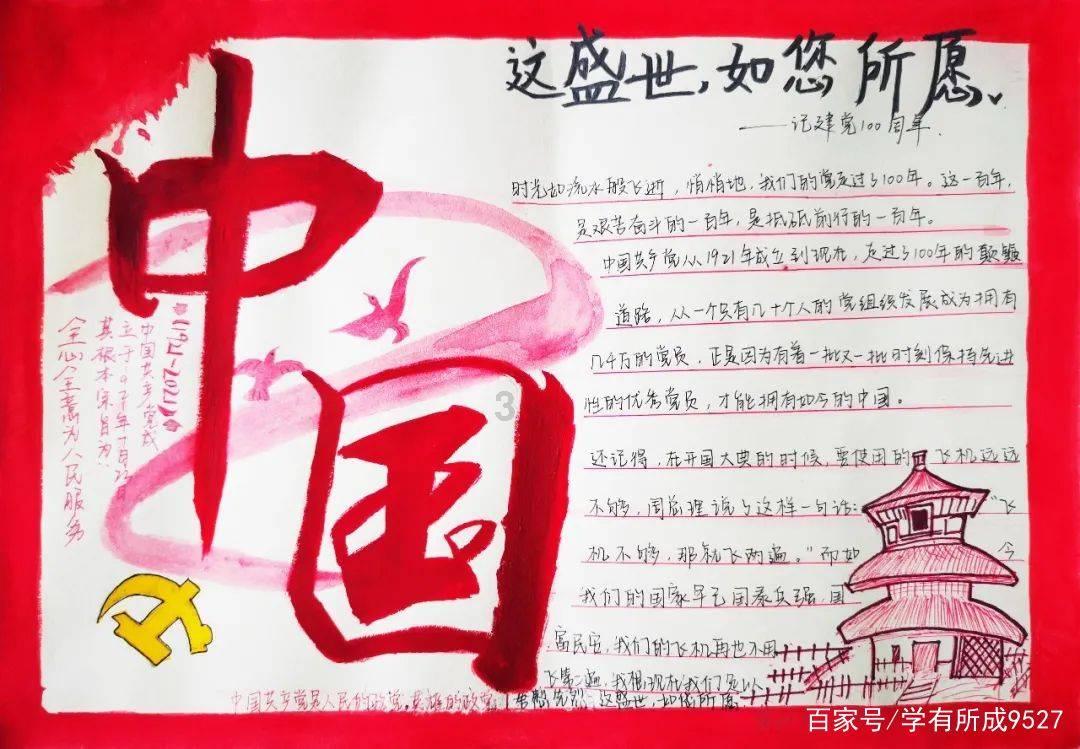 这盛世，如您所愿、
——记建党100周年.
时光如流水般飞逝，悄悄地，我们的党走过了100年。这一百年，
是艰苦奋斗的一百年，是抵砥前行的一百年。
中国共产党从1921年成立到现在，走过了100年的颠簸
道路，从一个只有几十个人的党组织发展成为拥有
几千万的党员，正是因为有着一批又一批时刻保持先进
性的优秀党员，才能拥有如今的中国。
还记得，在开国大典的时候，要使用的飞机远远
不够，周总理说了这样一句话：“飞
机不够，那就飞两遍。”而如今
我们的国家早已国泰兵强，国
富民安，我们的飞机再也不用
飞第二遍，我想现在我们可以
告慰先烈，这盛世，如您所愿
中国
(1921~2021)
中国共产党成
立于1921年7月23日
其根本宗旨为：
全心全意为人民服务
中国共产党是人民的政党，英雄的政党
3
百家号/学有所成9527